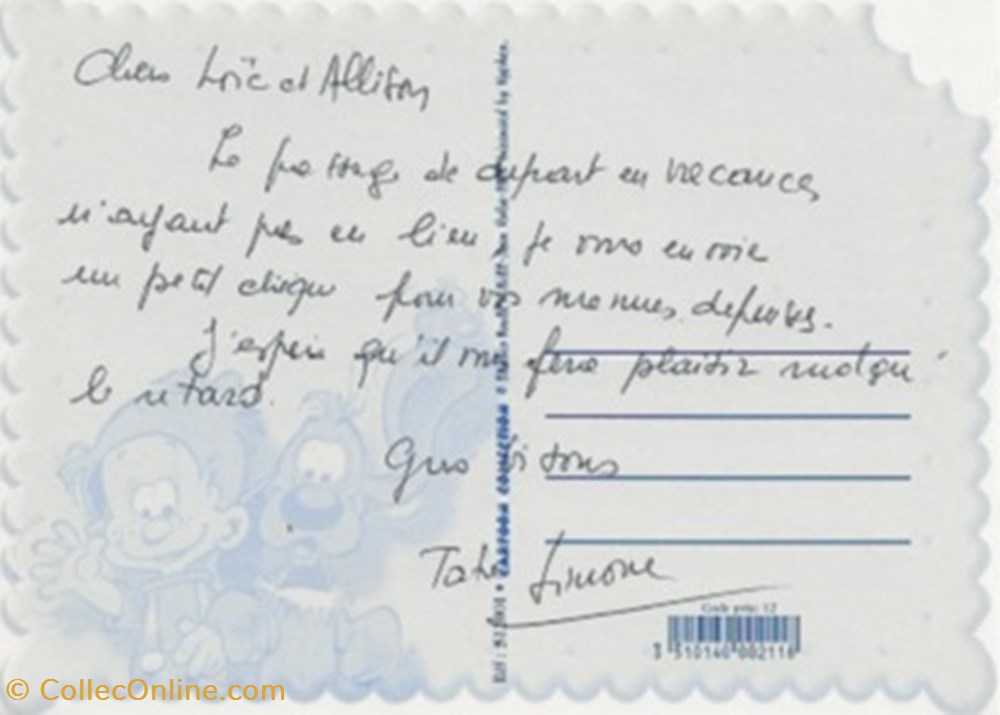 Chers Loïc et Allison
Le passage de depart en vacances
n'ayant pas eu lieu, je vous envoie
un petit chèque pour vos menues depenses.
J'espère qu'il vous fera plaisir malgré
le retard.
Gros bisous
Tata Simone
CARTOON COLLECTION
Code prix: 12
3 510140 002116
© CollecOnline.com